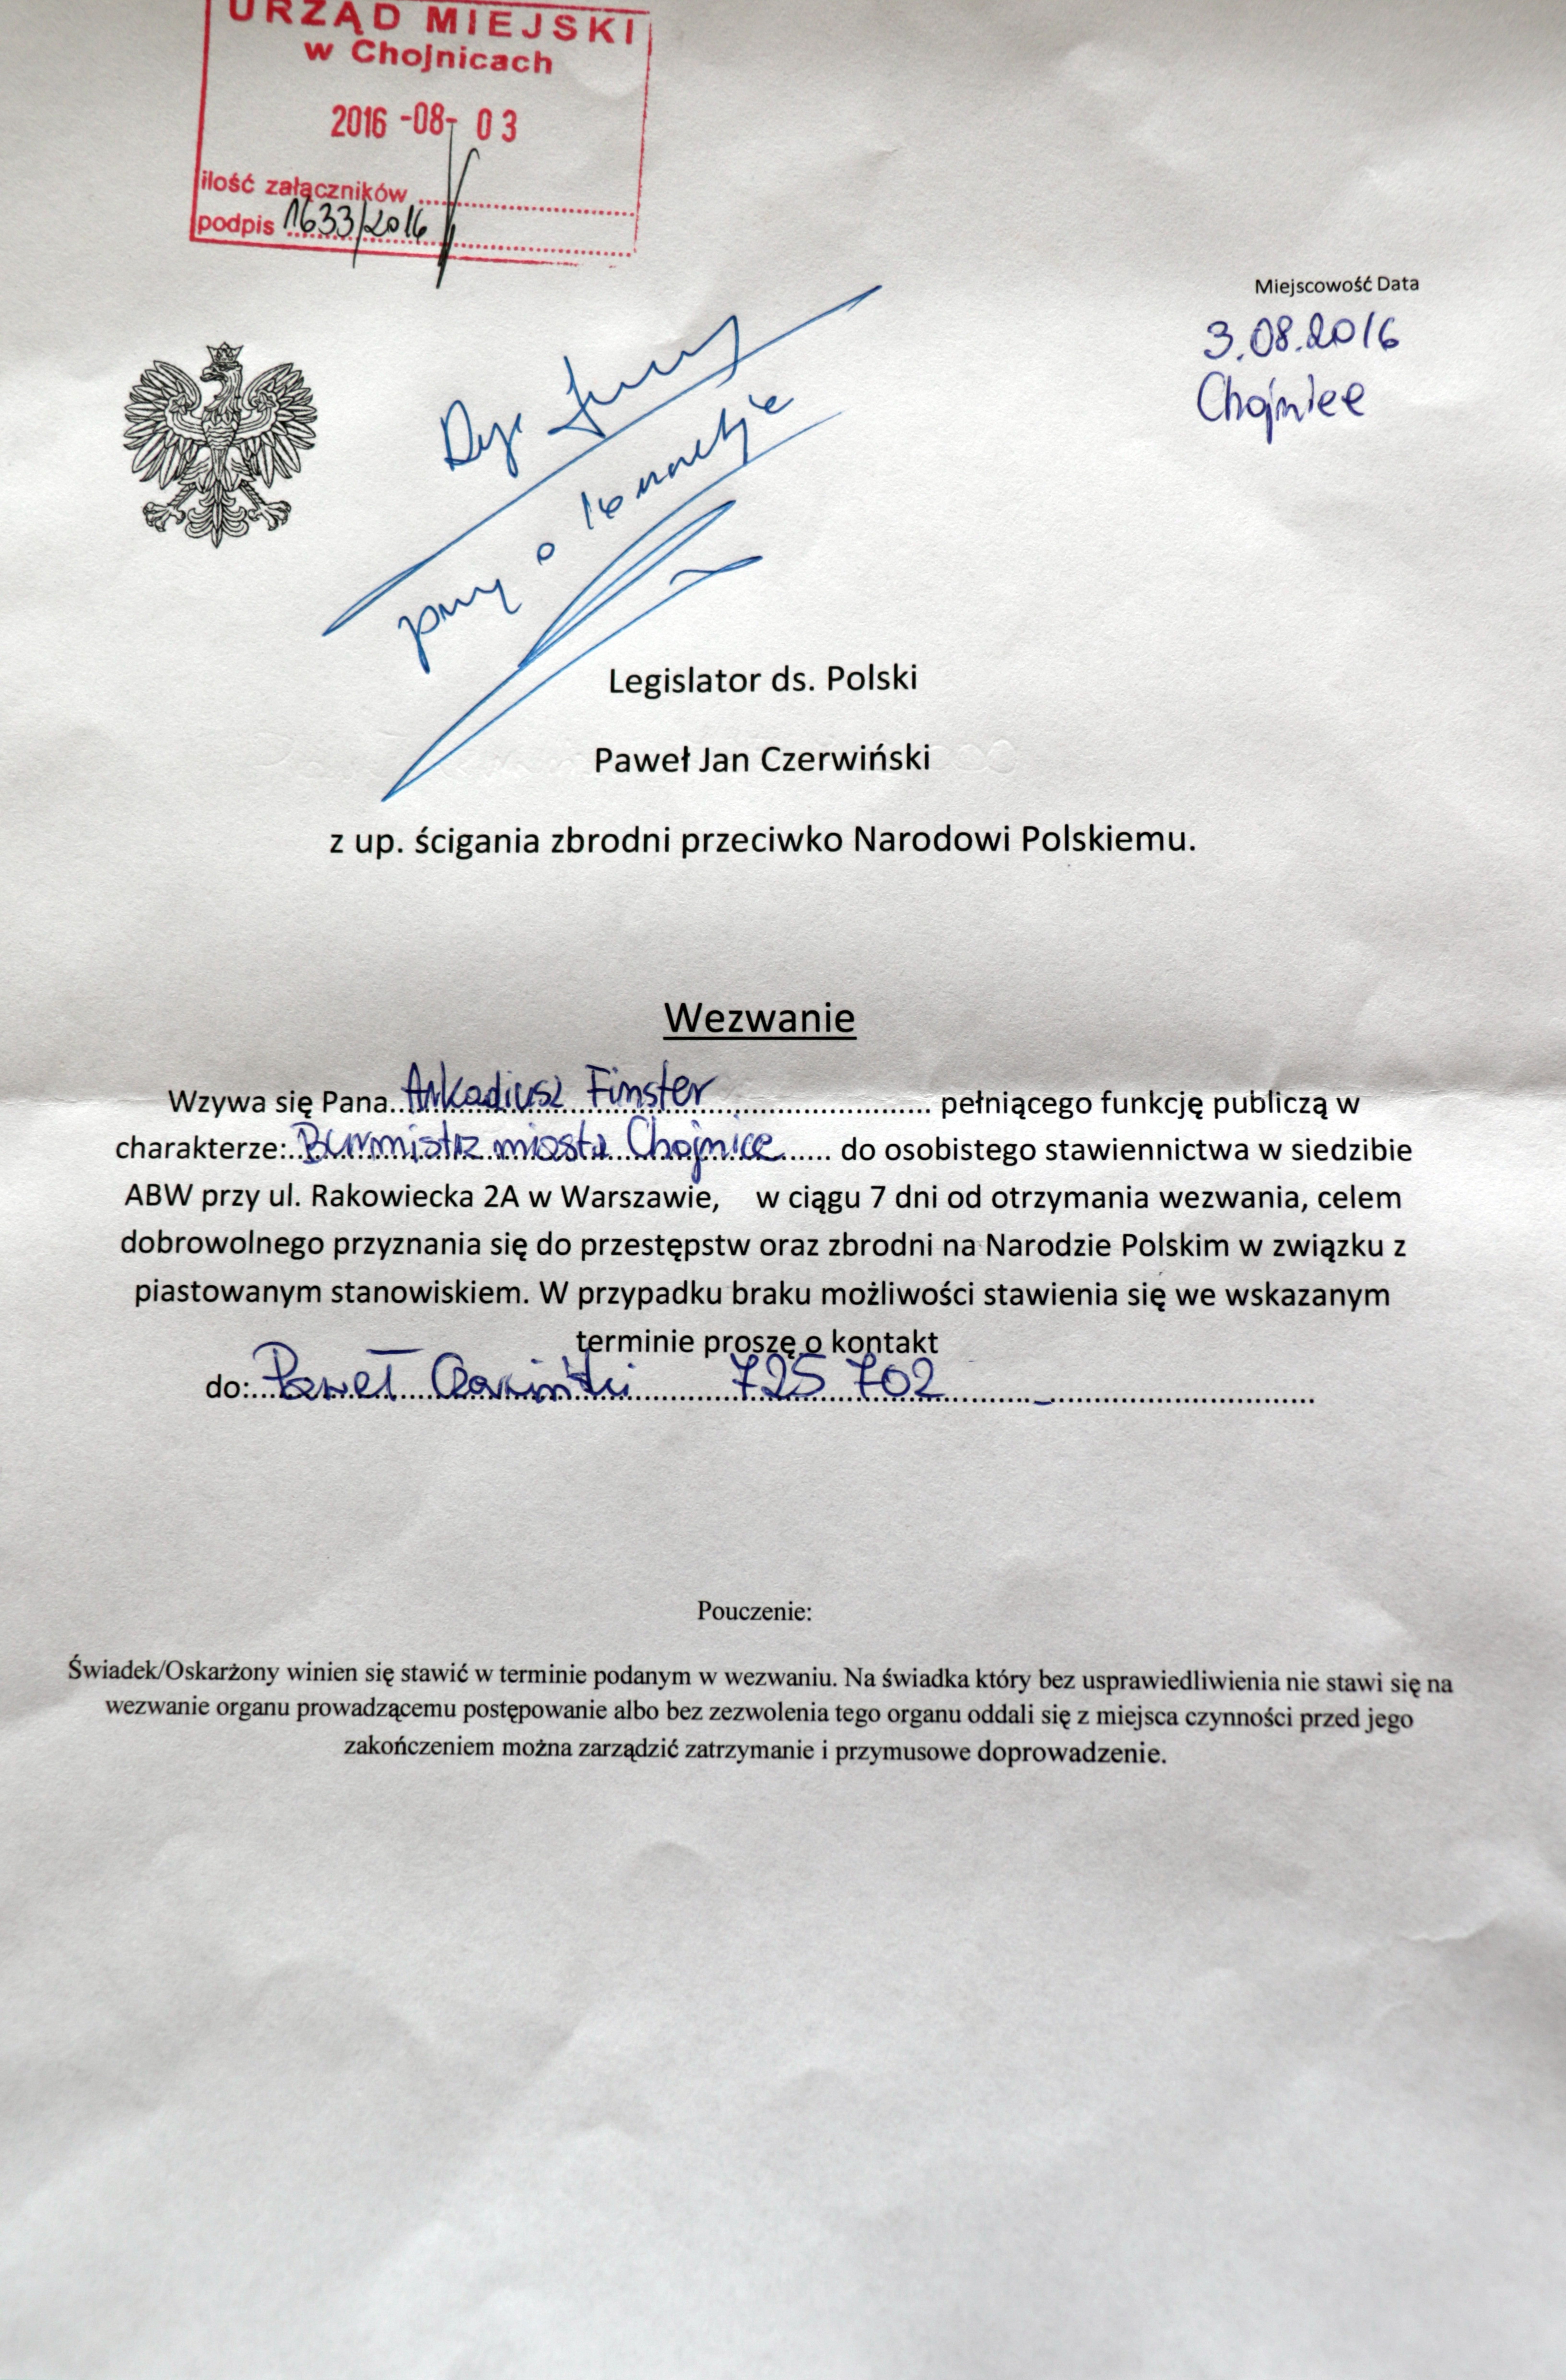 URZĄD MIEJSKI
w Chojnicach
2016 -08- 03
ilość załączników ........................
podpis 1633/2016
Miejscowość Data
3.08.2016
Chojnice
o
Legislator ds. Polski
Paweł Jan Czerwiński
z up. ścigania zbrodni przeciwko Narodowi Polskiemu.
Wezwanie
Wzywa się Pana Arkadiusz Finster pełniącego funkcję publiczą w
charakterze: Burmistrz miasta Chojnice do osobistego stawiennictwa w siedzibie
ABW przy ul. Rakowiecka 2A w Warszawie, w ciągu 7 dni od otrzymania wezwania, celem
dobrowolnego przyznania się do przestępstw oraz zbrodni na Narodzie Polskim w związku z
piastowanym stanowiskiem. W przypadku braku możliwości stawienia się we wskazanym
terminie proszę o kontakt
do: Paweł Czerwiński 725 702
Pouczenie:
Świadek/Oskarżony winien się stawić w terminie podanym w wezwaniu. Na świadka który bez usprawiedliwienia nie stawi się na
wezwanie organu prowadzącemu postępowanie albo bez zezwolenia tego organu oddali się z miejsca czynności przed jego
zakończeniem można zarządzić zatrzymanie i przymusowe doprowadzenie.